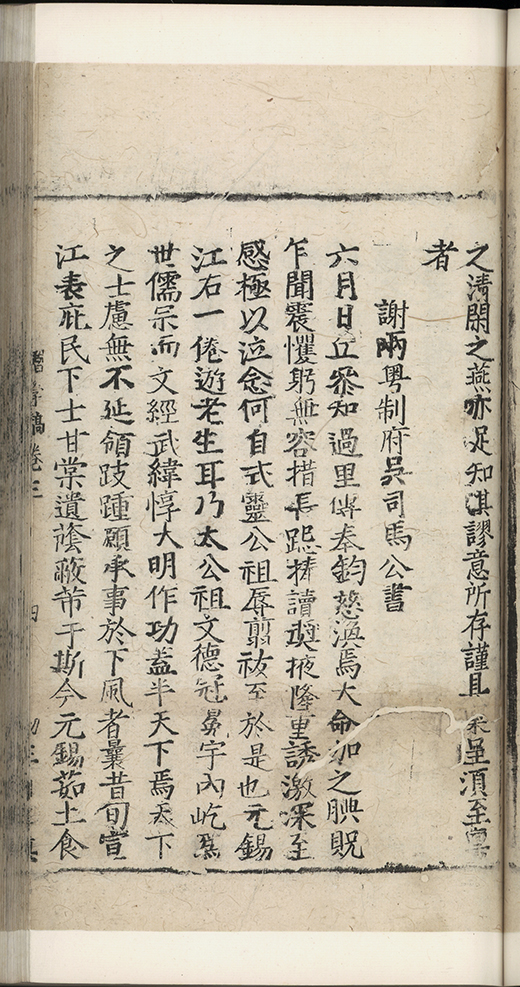 之清閑之燕亦足知淇謬意所存謹具 呈須至
者
謝兩粵制府吳司馬公書
六月日丘參知過里傳奉鈞慈誨焉大命加之腆貺
乍聞震懼躬無容措長跽捧讀奬掖隆重誘激深至
感極以泣念何自式靈公祖辱翦祓至於是也元錫
江右一倦遊老生耳乃太公祖文德冠冕宇內屹爲
世儒宗而文經武緯惇大明作功蓋半天下焉天下
之士慮無不延領跂踵願承事於下風者曩昔旬宣
江表庇民下士甘棠遺蔭蔽芾于斯今元錫茹土食
稿卷三 四